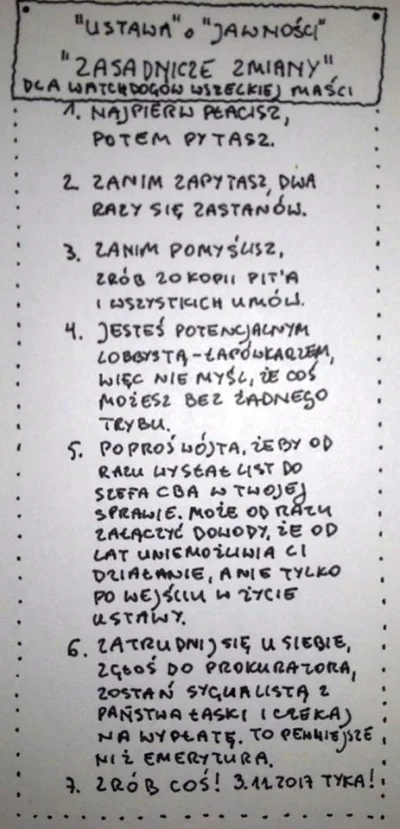 "USTAWA" o "JAWNOŚCI"
"ZASADNICZE ZMIANY"
DLA WATCHDOGÓW WSZELKIEJ MAŚCI
1. NAJPIERW PŁACISZ,
POTEM PYTASZ.
2. ZANIM ZAPYTASZ, DWA
RAZY SIĘ ZASTANÓW.
3. ZANIM POMYŚLISZ,
ZRÓB 20 KOPII PIT'A
I WSZYSTKICH UMÓW.
4. JESTEŚ POTENCJALNYM
LOBBYSTĄ-ŁAPÓWKARZEM,
WIĘC NIE MYŚL, ŻE COŚ
MOŻESZ BEZ ŻADNEGO
TRYBU.
5. POPROŚ WÓJTA, ŻEBY OD
RAZU WYSŁAŁ LIST DO
SZEFA CBA W TWOJEJ
SPRAWIE. MOŻE OD RAZU
ZAŁĄCZYĆ DOWODY, ŻE OD
LAT UNIEMOŻLIWIA CI
DZIAŁANIE, A NIE TYLKO
PO WEJŚCIU W ŻYCIE
USTAWY.
6. ZATRUDNIJ SIĘ U SIEBIE,
ZGŁOŚ DO PROKURATORA,
ZOSTAŃ SYGNALISTĄ Z
PAŃSTWA ŁASKI I CZEKAJ
NA WYPŁATĘ. TO PEWNIEJSZE
NIŻ EMERYTURA.
7. ZRÓB COŚ! 3.11.2017 TYKA!